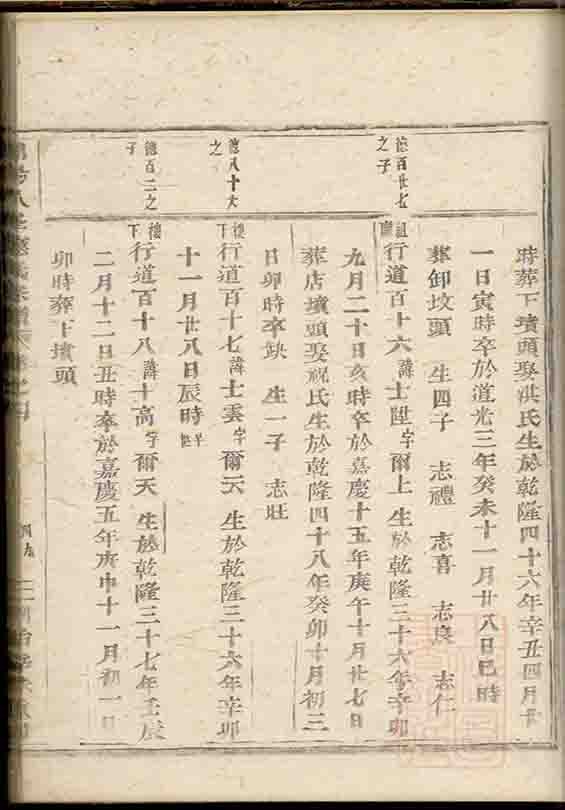 時葬下墳頭娶洪氏生於乾隆四十六年辛丑四月廿
一日寅時卒於道光三年癸未十一月廿八日巳時
葬卸坟頭 生四子 志禮 志喜 志良 志仁
德百廿七
之子
行道百十六諱士陞字爾上 生於乾隆三十六年辛卯
九月二十日亥時卒於嘉慶十五年庚午十月廿七日
葬店墳頭娶祝氏生於乾隆四十八年癸卯十月初三
日卯時卒缺 生一子 志旺
德八十六
之
德下行道百十七諱士雲字爾天 生於乾隆三十六年辛卯
十一月廿八日辰時早世
德百二之
子
德下行道百十八諱士高字爾天 生於乾隆三十七年壬辰
二月十二日丑時卒於嘉慶五年庚申十一月初一日
卯時葬下墳頭